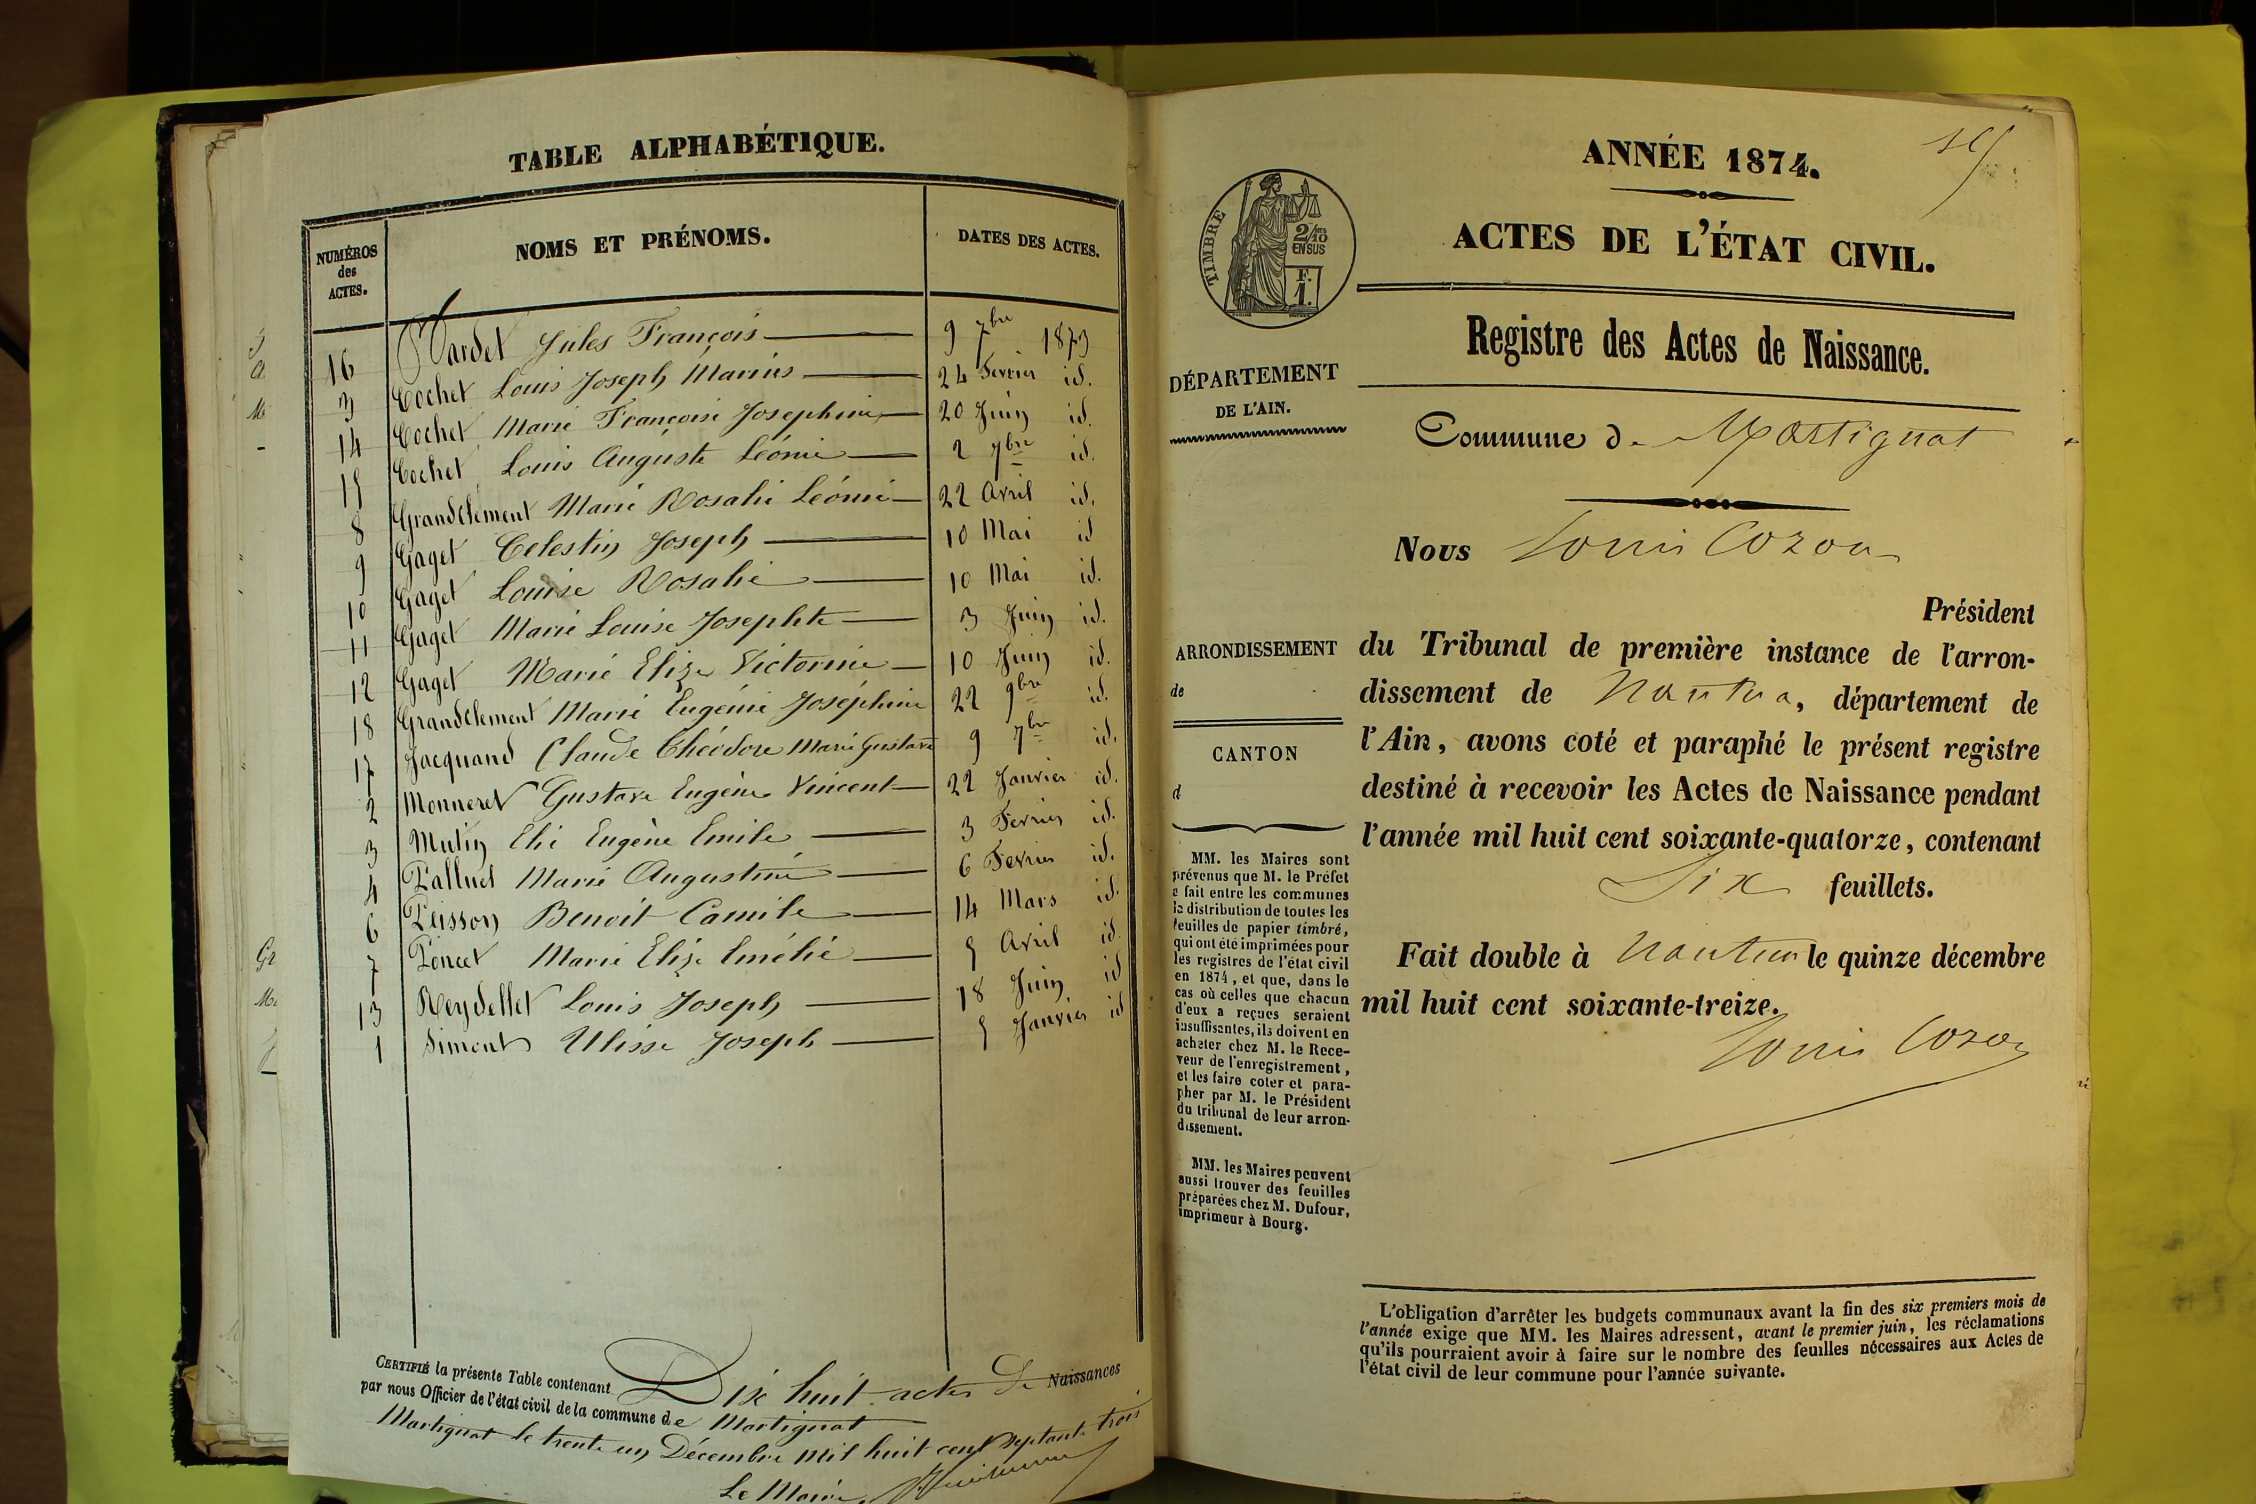 TABLE ALPHABÉTIQUE.
NUMÉROS des ACTES. NOMS ET PRÉNOMS. DATES DES ACTES.
16 Jules François 9 7bre 1873
3 Cochet Louis Joseph Marius 24 Fevrier id.
14 Cochet Marie Françoise Josephine 20 Juin id.
15 Cochet Louis Auguste Léonie 2 7bre id.
8 Grandclément Marie Rosalie Léonie 22 Avril id.
9 Gaget Celestin Joseph 10 Mai id
10 Gaget Louise Rosalie 10 Mai id.
11 Gaget Marie Louise Josephte 3 Juin id.
12 Gaget Marie Elize Victorine 10 Juin id.
18 Grandclement Marie Eugénie Joséphine 22 9bre id.
17 Jacquand Claude Théodore Marie Gustave 9 7bre id.
2 Monneret Gustave Eugène Vincent 22 Janvier id.
3 Mutin Elie Eugène Emile 3 Fevrier id.
4 Palluel Marie Augustine 6 Fevrier id.
6 Peisson Benoit Camile 14 Mars id.
7 Poncet Marie Elize Emélie 5 Avril id.
13 Reydellet Louis Joseph 18 Juin id
1 Simont Ulisse Joseph 5 Janvier id
CERTIFIÉ la présente Table contenant Dix huit actes de Naissances
par nous Officier de l'état civil de la commune de Martignat
Martignat le trente un Décembre mil huit cent septante trois
Le Maire,
ANNÉE 1874.
ACTES DE L'ÉTAT CIVIL.
TIMBRE
2/10 EN SUS
F. 1.
Registre des Actes de Naissance.
DÉPARTEMENT
DE L'AIN.
Commune de Martignat
Nous Louis Cozon
Président
ARRONDISSEMENT
de
du Tribunal de première instance de l'arron-
dissement de Nantua, département de
l'Ain, avons coté et paraphé le présent registre
destiné à recevoir les Actes de Naissance pendant
l'année mil huit cent soixante-quatorze, contenant
Six feuillets.
CANTON
d
Fait double à Nantua le quinze décembre
mil huit cent soixante-treize.
Louis Cozon
MM. les Maires sont
prévenus que M. le Préfet
a fait entre les communes
la distribution de toutes les
feuilles de papier timbré,
qui ont été imprimées pour
les registres de l'état civil
en 1874, et que, dans le
cas où celles que chacun
d'eux a reçues seraient
insuffisantes, ils doivent en
acheter chez M. le Rece-
veur de l'enregistrement,
et les faire coter et para-
pher par M. le Président
du tribunal de leur arron-
dissement.
MM. les Maires peuvent
aussi trouver des feuilles
préparées chez M. Dufour,
imprimeur à Bourg.
L'obligation d'arrêter les budgets communaux avant la fin des six premiers mois de
l'année exige que MM. les Maires adressent, avant le premier juin, les réclamations
qu'ils pourraient avoir à faire sur le nombre des feuilles nécessaires aux Actes de
l'état civil de leur commune pour l'année suivante.